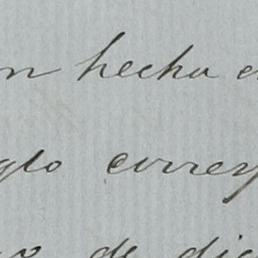 n hecha
glo corres
de dic